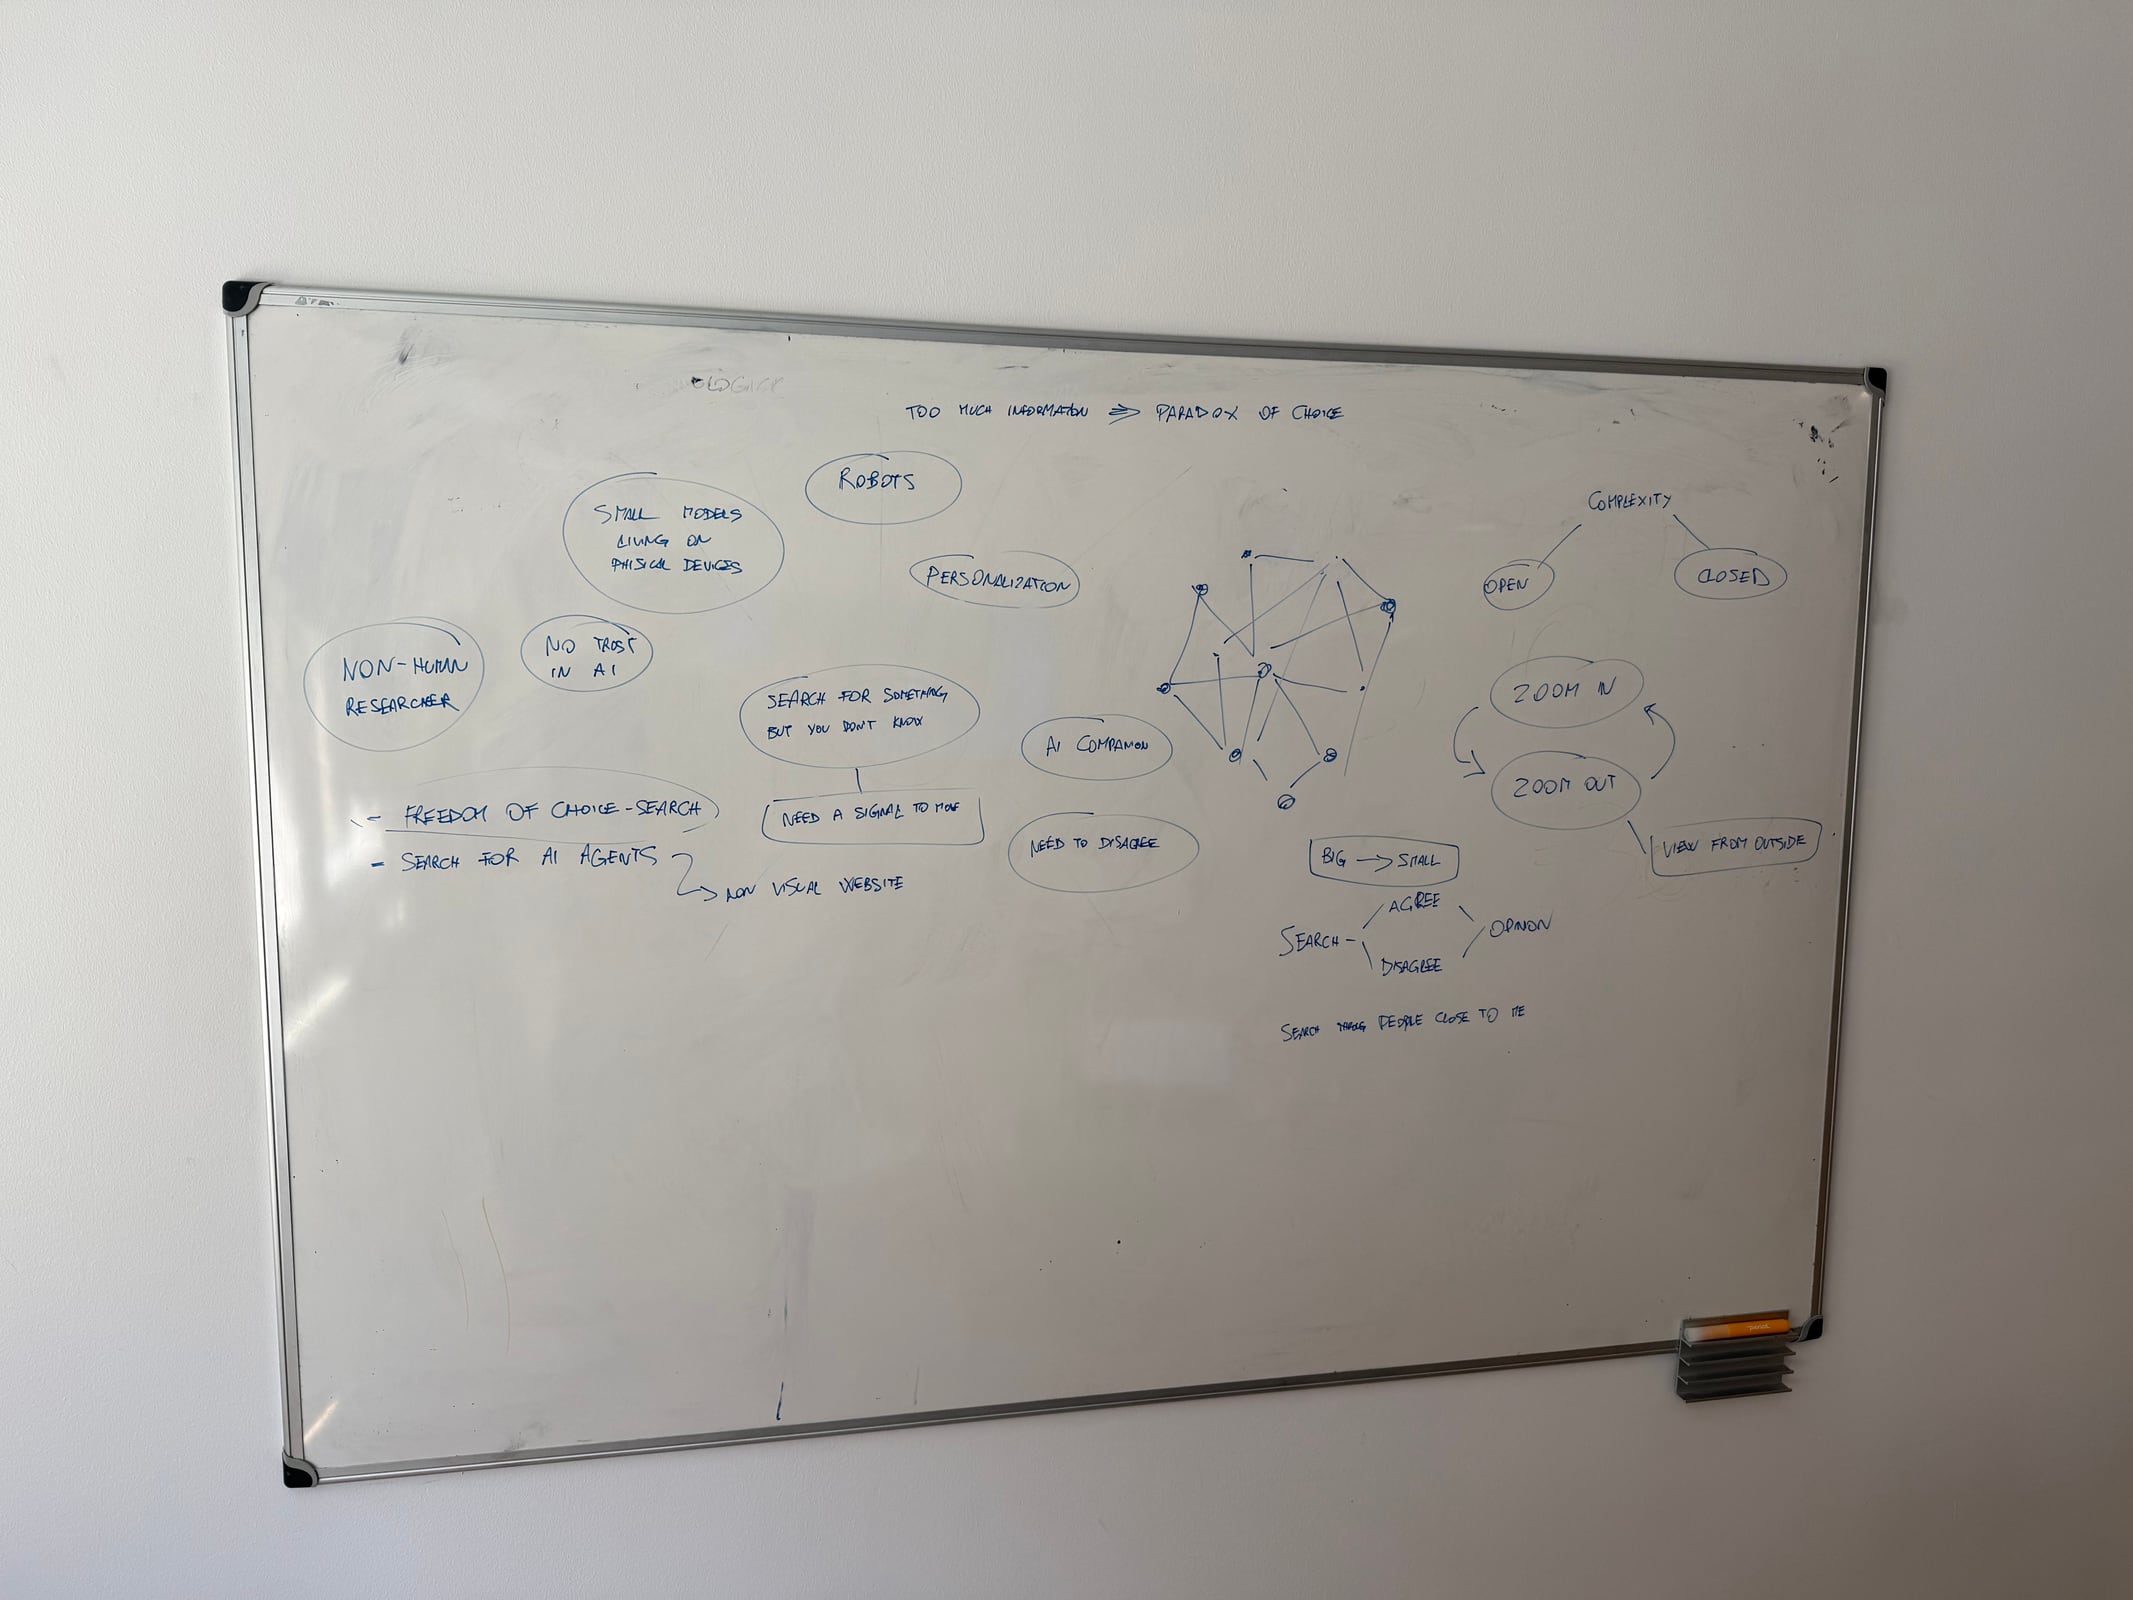 TOO MUCH INFORMATION => PARADOX OF CHOICE
ROBOTS
SMALL MODELS
LIVING ON
PHISICAL DEVICES
PERSONALIZATION
NON-HUMAN
RESEARCHER
NO TRUST
IN AI
SEARCH FOR SOMETHING
BUT YOU DON'T KNOW
NEED A SIGNAL TO MOVE
AI COMPANION
NEED TO DISAGREE
- FREEDOM OF CHOICE - SEARCH
- SEARCH FOR AI AGENTS
NON VISUAL WEBSITE
COMPLEXITY
OPEN
CLOSED
ZOOM IN
ZOOM OUT
VIEW FROM OUTSIDE
BIG -> SMALL
AGREE
SEARCH -
OPINION
DISAGREE
SEARCH PEOPLE CLOSE TO ME